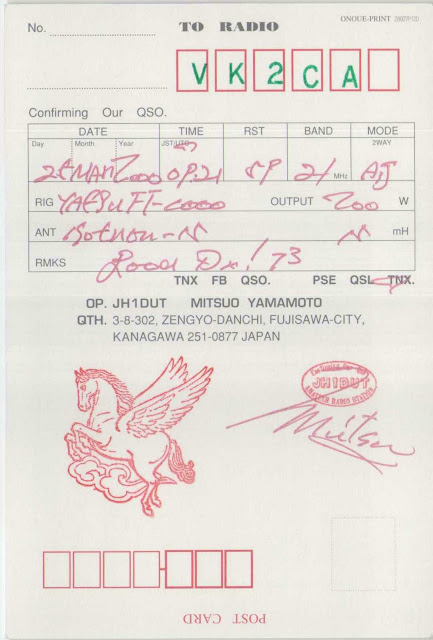 ONOUE-PRINT
No. TO RADIO
VK2CA
Confirming Our QSO.
DATE TIME RST BAND MODE
Day Month Year JST/UTC 2WAY
2000 21 MHz
RIG YAESU FT- OUTPUT 200 W
ANT mH
RMKS Good Dx! 73
TNX FB QSO. PSE QSL TNX.
OP. JH1DUT MITSUO YAMAMOTO
QTH. 3-8-302, ZENGYO-DANCHI, FUJISAWA-CITY,
KANAGAWA 251-0877 JAPAN
JH1DUT
AMATEUR RADIO STATION
Mitsu
POST CARD